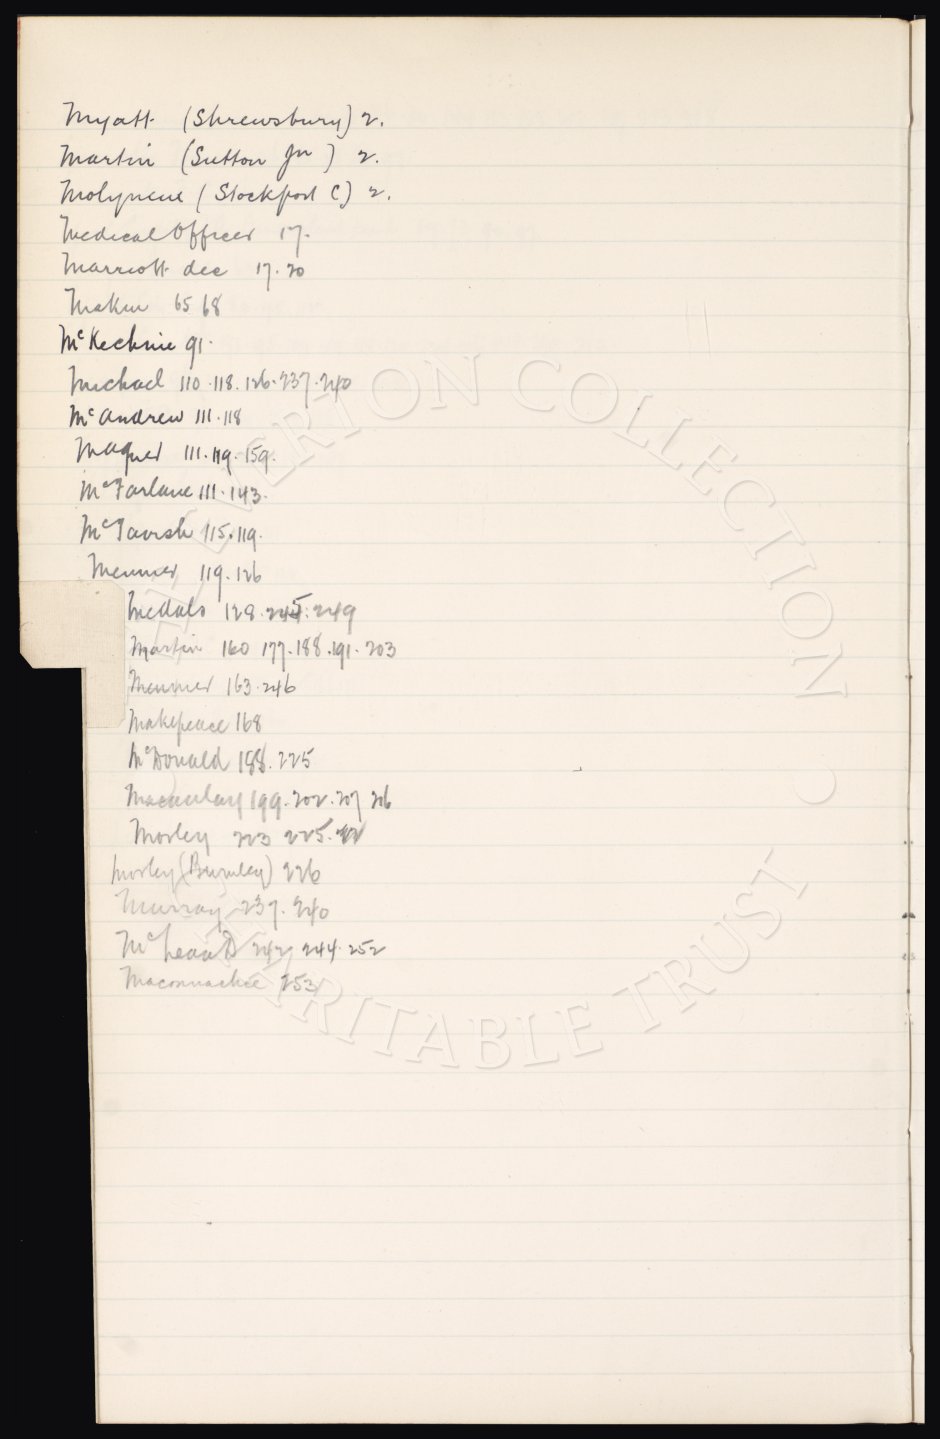 Myatt (Shrewsbury) 2.
Martin (Sutton Jn) 2.
Molyneux (Stockport C) 2.
Medical Officer 17.
Marriott dec 17. 20
Makin 65 68
McKechnie 91.
Michael 110. 118. 126. 237. 240
McAndrew 111. 118
Magner 111. 119. 159.
McFarlane 111. 143.
McTavish 115. 119.
Menmer 119. 126
Medals 128. 245. 249
Martin 160 177. 188. 191. 203
163. 246
Makepeace 168
McDonald 188. 225
Macaulay 199. 202. 207
Morley 223 225.
Morley (Burnley) 226
Murray 237. 240
242 244. 252
Maconnachie 253
EVERTON COLLECTION
CHARITABLE TRUST